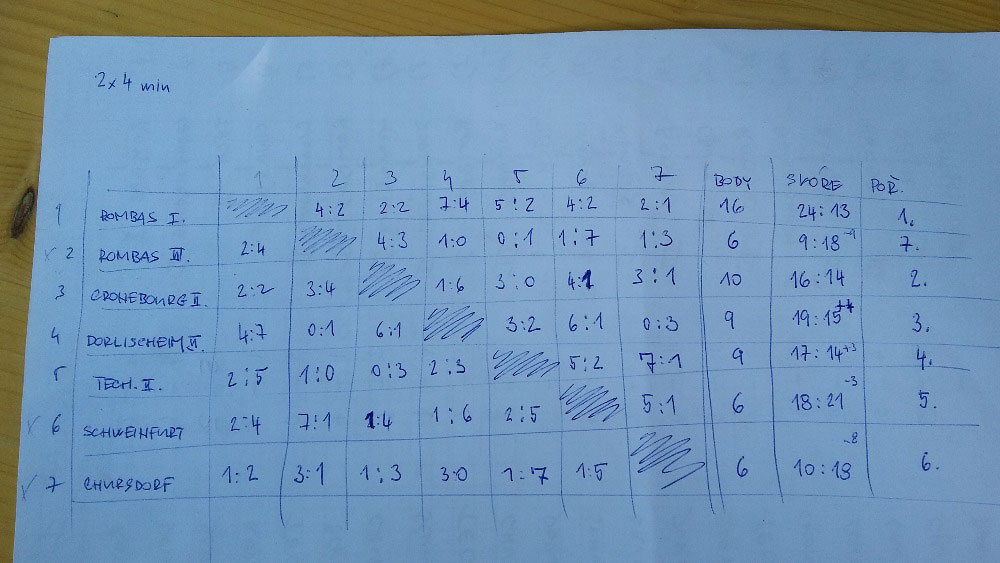 2x4 min
1 2 3 4 5 6 7 BODY SKÓRE POŘ.
1 ROMBAS I. 4:2 2:2 7:4 5:2 4:2 2:1 16 24:13 1.
√ 2 ROMBAS III. 2:4 4:3 1:0 0:1 1:7 1:3 6 9:18 -9 7.
3 CRONEBOURG II. 2:2 3:4 1:6 3:0 4:1 3:1 10 16:14 2.
4 DORLISCHEIM II. 4:7 0:1 6:1 3:2 6:1 0:3 9 19:15 +4 3.
5 TECH. II. 2:5 1:0 0:3 2:3 5:2 7:1 9 17:14 +3 4.
√ 6 SCHWEINFURT 2:4 7:1 1:4 1:6 2:5 5:1 6 18:21 -3 5.
√ 7 CHURSDORF 1:2 3:1 1:3 3:0 1:7 1:5 6 10:18 -8 6.